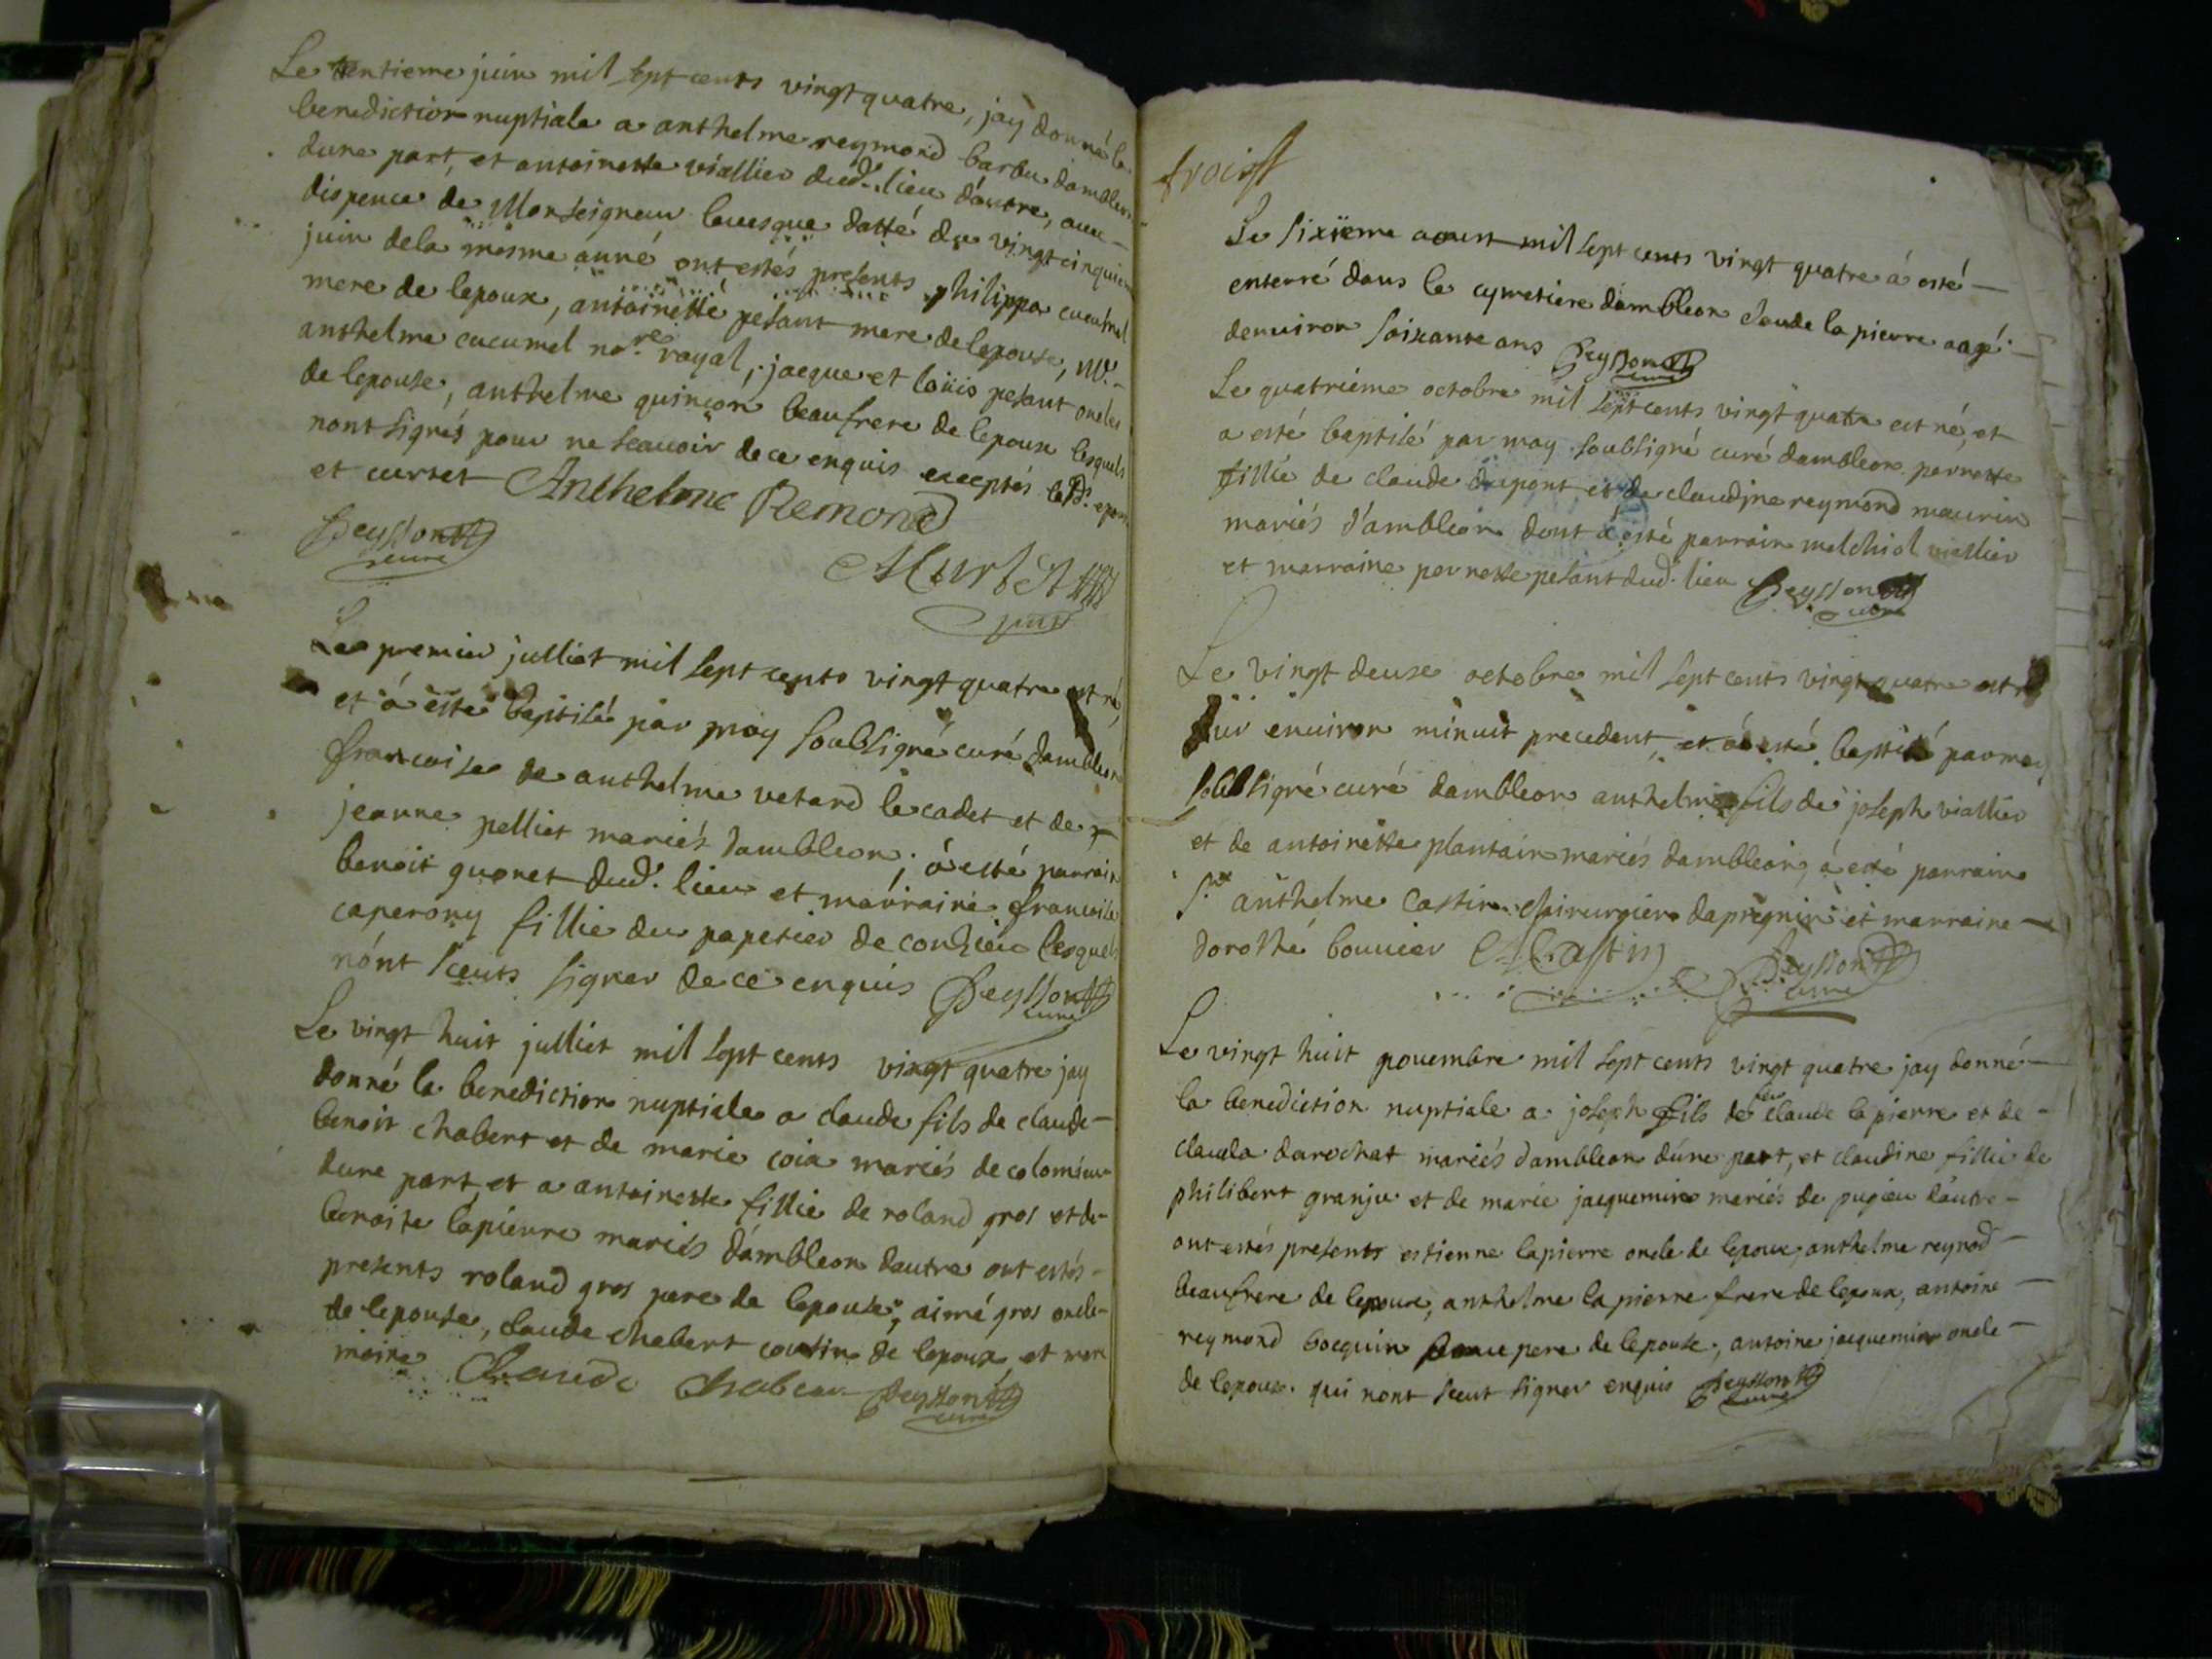 Le trentieme juin mil sept cents vingt quatre, jay donné la
benediction nuptiale a anthelme reymond barbu dambleon
dune part, et antoinette viallier dud. lieu dautre, avec
dispence de Monseigneur levesque datté du vingt cinquieme
juin dela mesme anné ont estés presents philippa cucumel
mere de lepoux, antoinette pesant mere de lepouse, Mr.
anthelme cucumel nore. royal, jacque et loüis pesant oncles
de lepouse, anthelme quinson beaufrere de lepoux lesquels
nont signés pour ne scauoir de ce enquis exceptés led. epoux
et curtet Anthelme Remond
Peysson
curé
ACurtet
Le premier julliet mil sept cents vingt quatre est né,
et á esté baptisé par moy soubsigné curé dambleon
francoise de anthelme vetard le cadet et de
jeanne pelliet mariés dambleon; á esté parrain
benoit guonet dud. lieu et marraine francoise
caperony fillie du papetier de conzieu lesquels
nont sceuts signer de ce enquis Peysson
curé
Le vingt huit julliet mil sept cents vingt quatre jay
donné la benediction nuptiale a claude fils de claude
benoit chabert et de marie coia mariés de colomieu
dune part, et a antoinette fillie de roland gros et de
benoite lapierre mariés dambleon dautre ont estés
presents roland gros pere de lepouse, aimé gros oncle
de lepouse, claude chabert cousin de lepoux et
Claude Chaber Peysson
curé
Le sixieme aoust mil sept cents vingt quatre á esté
enterré dans le cymetiere dambleon claude la pierre aagé
denuiron soixante ans Peysson
curé
Le quatriéme octobre mil sept cents vingt quatre est né, et
a esté baptisé par moy soubsigné curé dambleon pernette
fillie de claude dupont et de claudine reymond maurin
mariés d'ambleon dont á esté parrain melchiol viallier
et marraine pernette pesant dud. lieu Peysson
curé
Le vingt deuse octobre mil sept cents vingt quatre est né
sur enuiron minuit precedent, et á esté baptisé par moy
soubsigné curé dambleon anthelme fils de joseph viallier
et de antoinette plantain mariés dambleon, á esté parrain
Sr. anthelme Castin chirurgien dapregnin et marraine
dorothé bouuier ACastin Peysson
curé
Le vingt huit nouembre mil sept cents vingt quatre jay donné
la benediction nuptiale a joseph fils de feu claude la pierre et de
clauda darochat mariés dambleon dúne part, et claudine fillie de
philibert granju et de marie jacquemin mariés de pugieu dáutre
ont estés presents estienne lapierre oncle de lepoux, anthelme reynod
beaufrere de lepoux, anthelme lapierre frere de lepoux, antoine
reymond bocquin beaupere de lepouse, antoine jacquemin oncle
de lepouse. qui nont sceut signer enquis Peysson
curé